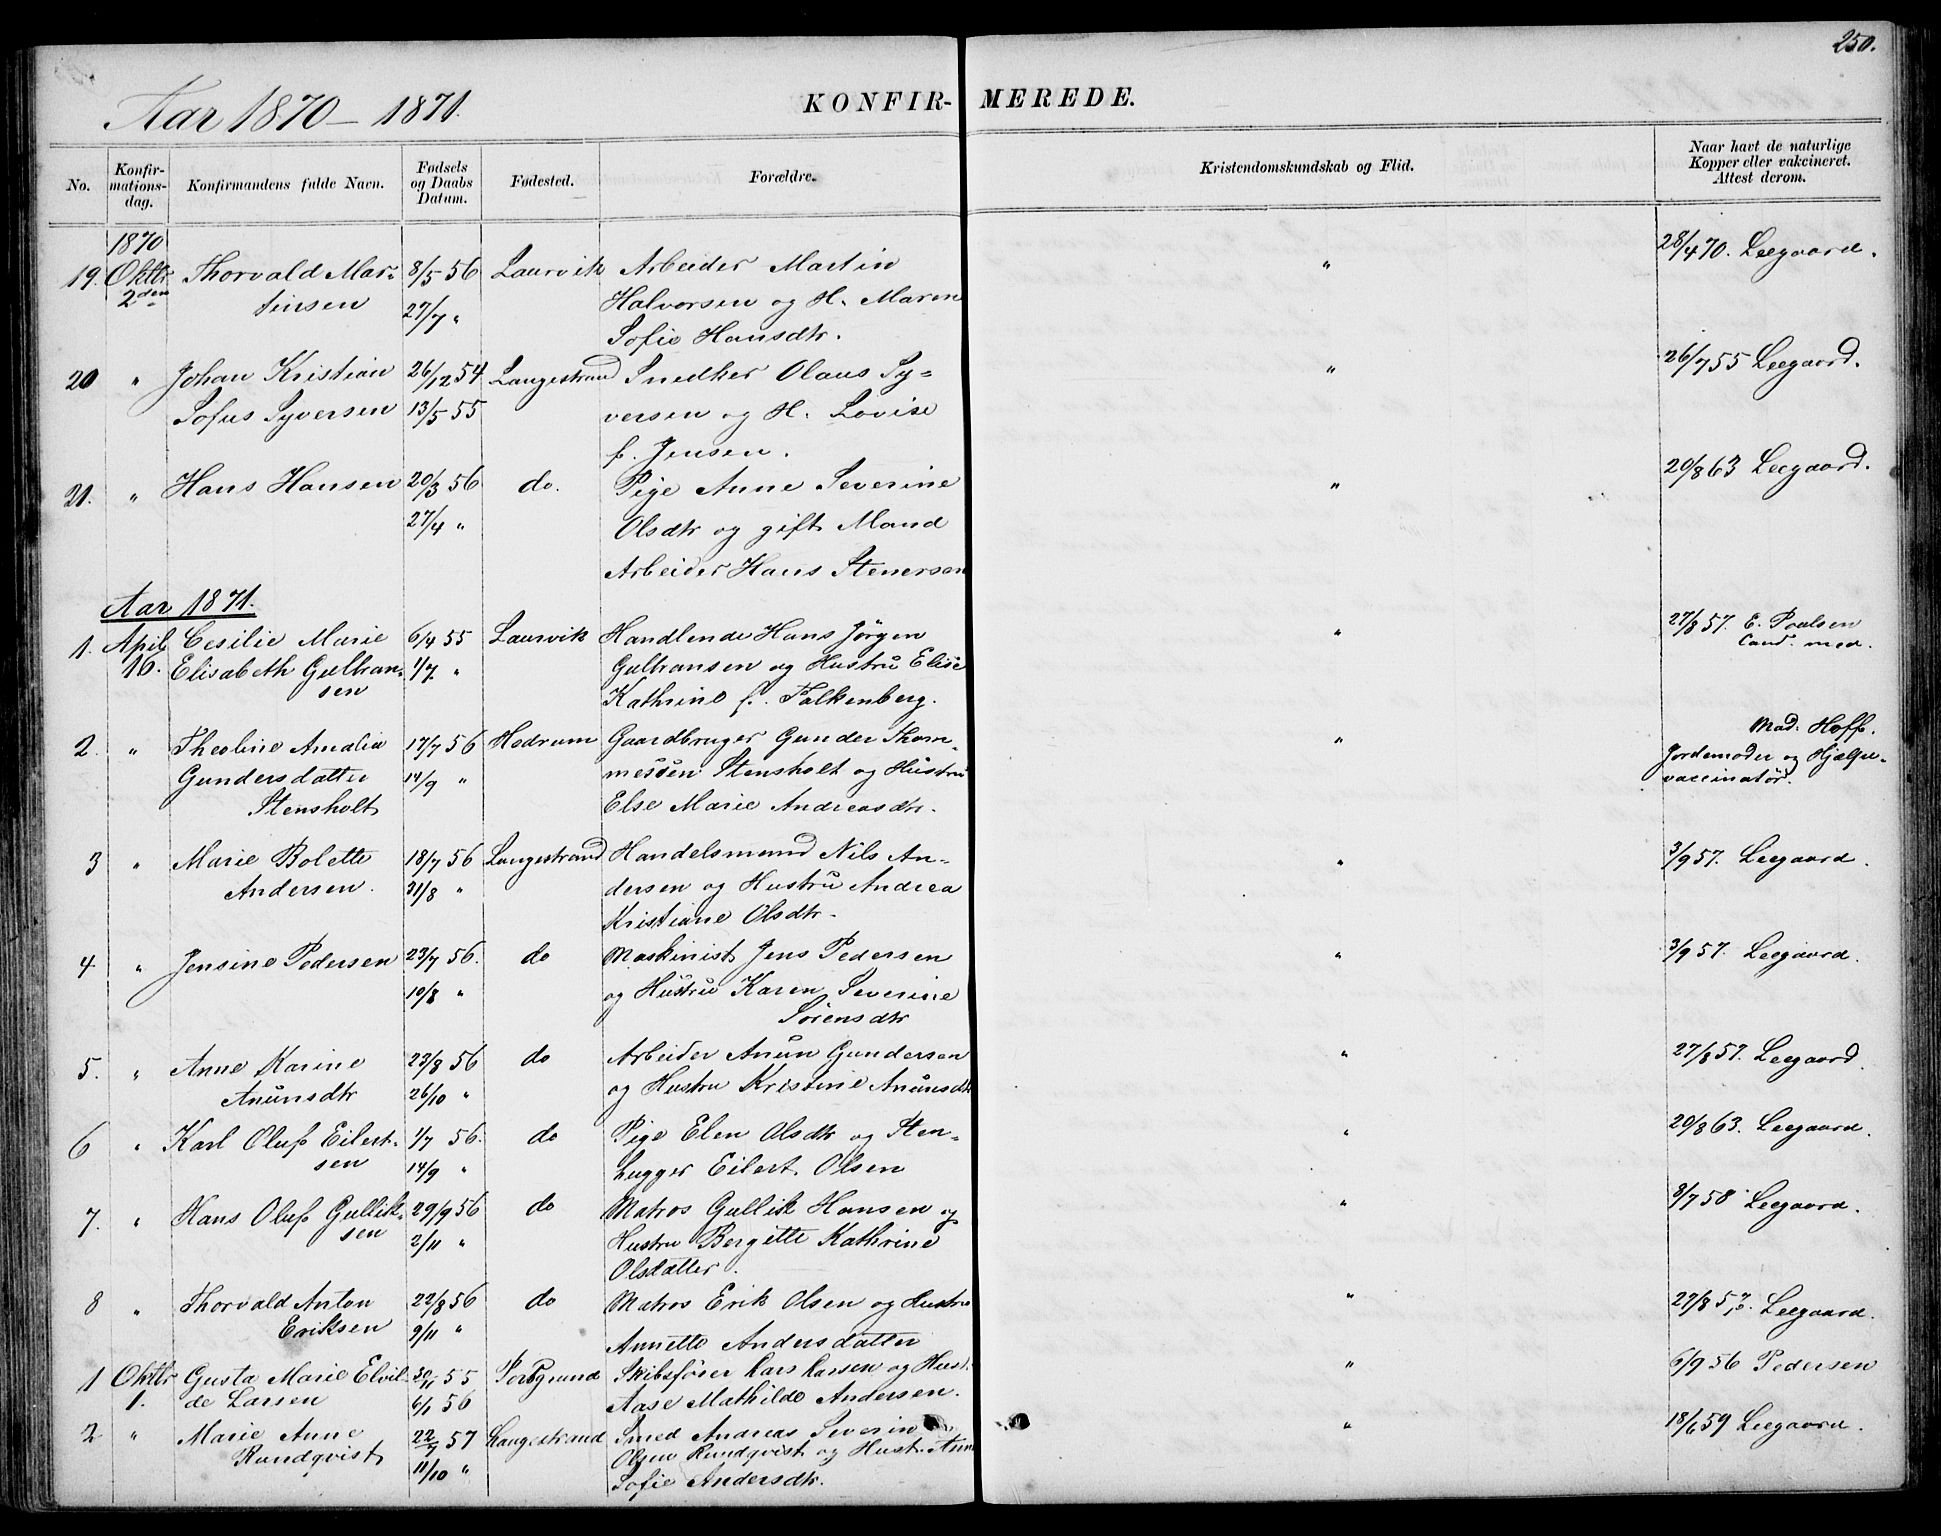 250.
Aar 1870 – 1871.
KONFIR- MEREDE.
No. Konfir-mations-dag. Konfirmandens fulde Navn. Fødsels og Daabs Datum. Fødested. Forældre. Kristendomskundskab og Flid. Naar havt de naturlige Kopper eller vakcineret. Attest derom.
1870
19. Oktbr Thorvald Mar- 8/5 56 Laurvik Arbeider Martin " 28/4 70. Leegaard.
2den tinsen 27/7 " Halvorsen og H. Maren
Sofie Hansdtr.
20 " Johan Kristian 26/12 54 Langestrand Snedker Olaus Sy- " 26/7 55 Leegaard.
Sofus Syversen 13/5 55 versen og H. Lovise
f. Jensen.
21. " Hans Hansen 20/3 56 do. Pige Anne Severine " 20/8 63 Leegaard.
27/4 " Olsdtr og gift Mand
Arbeider Hans Stenersen
Aar 1871.
1. April Cesilie Marie 6/4 55 Laurvik Handlende Hans Jørgen " 27/8 57. E. Poulsen
16. Elisabeth Gulbran- 1/7 " Gulbransen og Hustru Elise Cand. med.
sen Kathrine f. Falkenberg.
2. " Theoline Amalia 17/7 56 Hedrum Gaardbruger Gunder Thom- " Mad. Hoff.
Gundersdatter 14/9 " messen Stensholt og Hustru Jordemoder og Hjælpe-
Stensholt Else Marie Andreasdtr. vaccinatør.
3 " Marie Bolette 18/7 56 Langestrand Handelsmand Nils An- " 3/9 57. Leegaard.
Andersen. 31/8 " dersen og Hustru Andrea
Kristiane Olsdtr.
4 " Jensine Pedersen 23/7 56. do Maskinist Jens Pedersen " 3/9 57. Leegaard.
10/8 " og Hustru Karen Severine
Sörensdtr
5. " Anne Karine 23/8 56 do Arbeider Anun Gundersen " 27/8 57. Leegaard.
Anunsdtr 26/10 " og Hustru Kristine Anunsdtr
6 " Karl Oluf Eilert- 1/7 56. do Pige Elen Olsdtr og Sten- " 20/8 63. Leegaard.
sen 14/9 " hugger Eilert Olsen
7. " Hans Oluf Gullik- 29/9 56 do Matros Gullik Hansen og " 8/7 58 Leegaard.
sen 2/11 " Hustru Bergitte Kathrine
Olsdatter.
8 " Thorvald Anton 22/8 56 do Matros Erik Olsen og Hustru " 27/8 57. Leegaard.
Eriksen 9/11 " Annette Andersdatter
1 Oktbr Gusta Marie Elvil- 30/11 55 Porsgrund Skibsfører Lars Larsen og Hust. " 6/9 56 Pedersen
1. de Larsen 6/1 56 Aase Mathilde Andersen.
2 " Marie Anne 22/7 57 Langestrand Smed Andreas Severin " 18/6 59 Leegaard.
Rundqvist 11/10 " Olsen Rundqvist og Hust. Anne
Sofie Andersdtr.